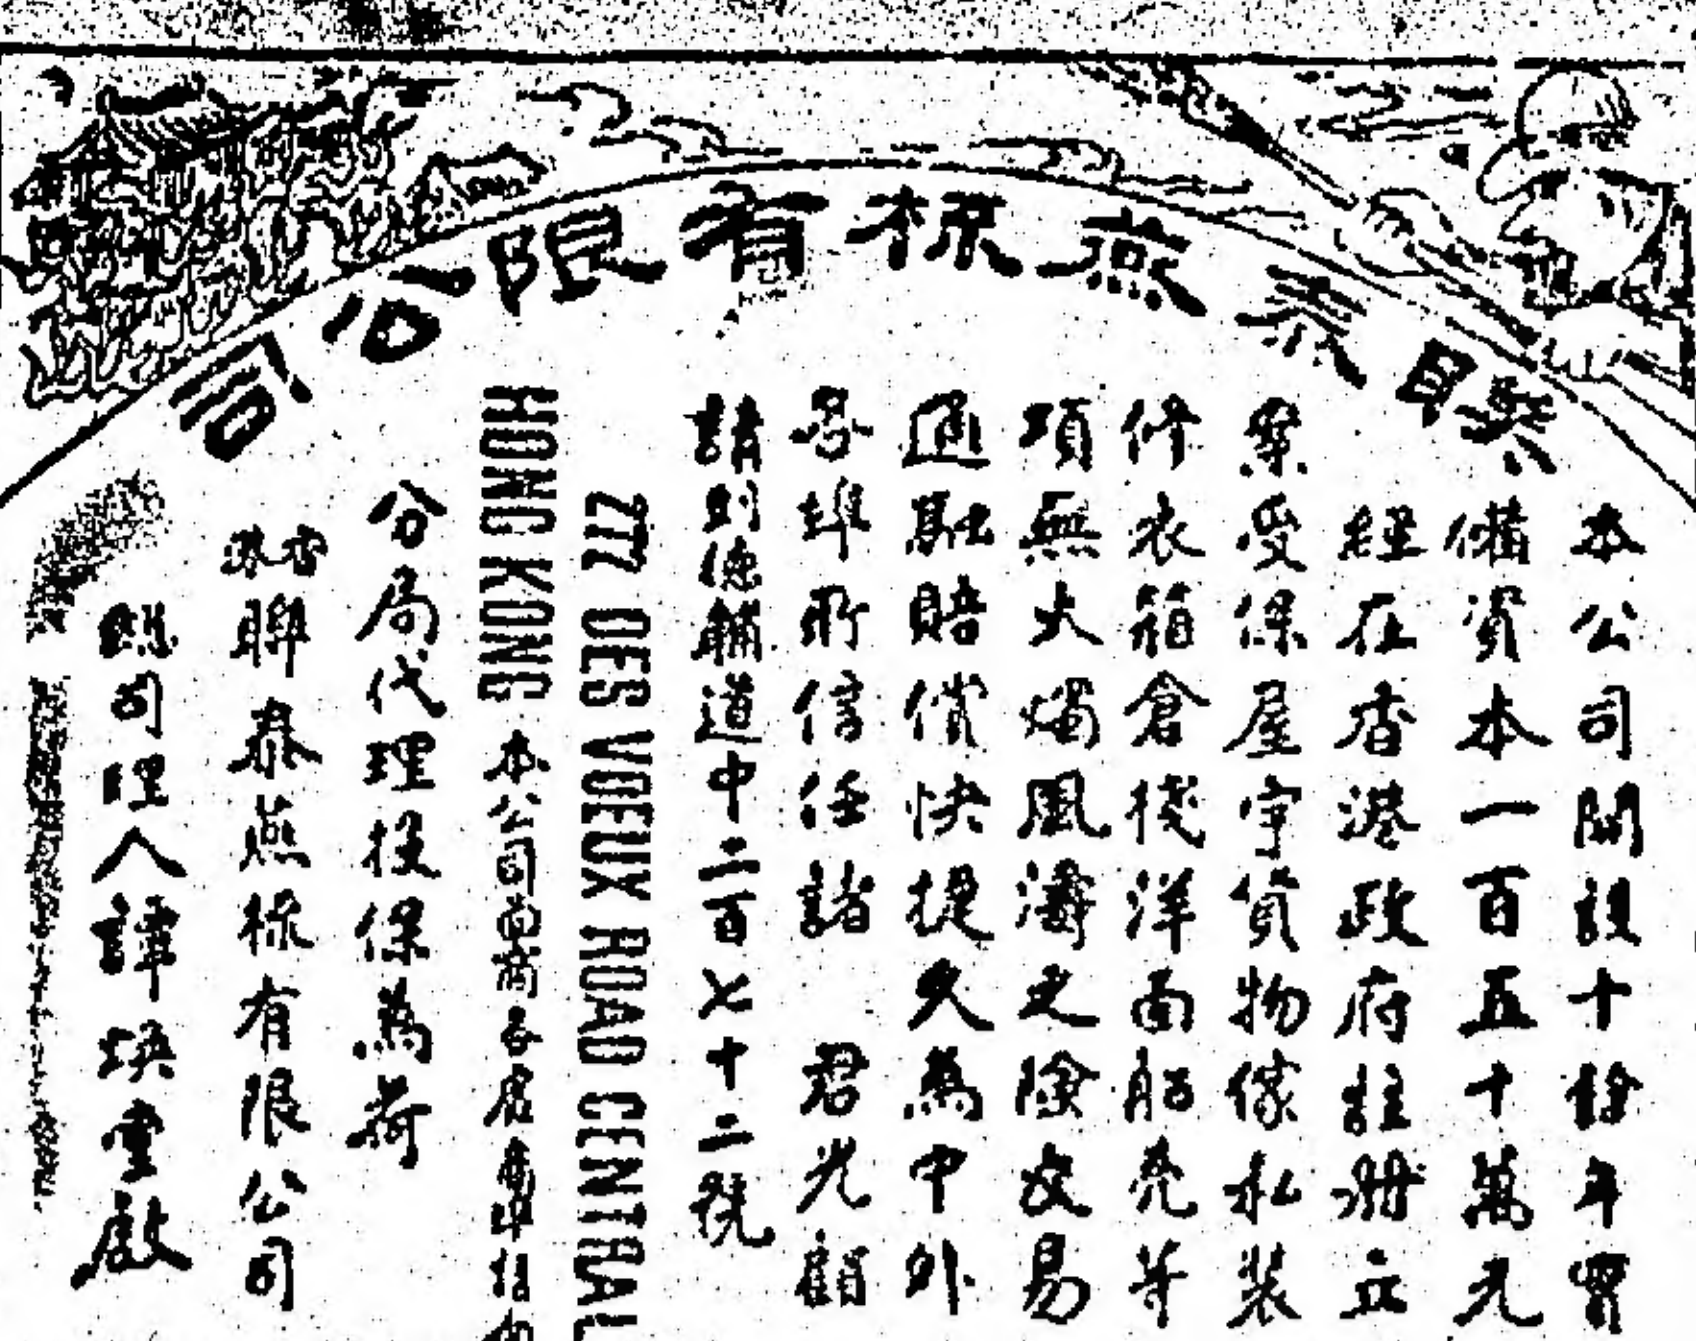 聯泰燕梳有限公司
本公司開設十餘年實
備資本一百五十萬元
經在香港政府註冊立
案受保屋宇貨物傢私裝
修衣箱倉棧洋面船売等
項無火燭風濤之險交易
通融賠償快捷久為中外
各埠所信任諸 君光顧
請到德輔道中二百七十二號
277 DES VOEUX ROAD CENTRAL
HONG KONG
本公司
分局代理投保為荷
香港
聯泰燕梳有限公司
總司理人譚煥堂啟